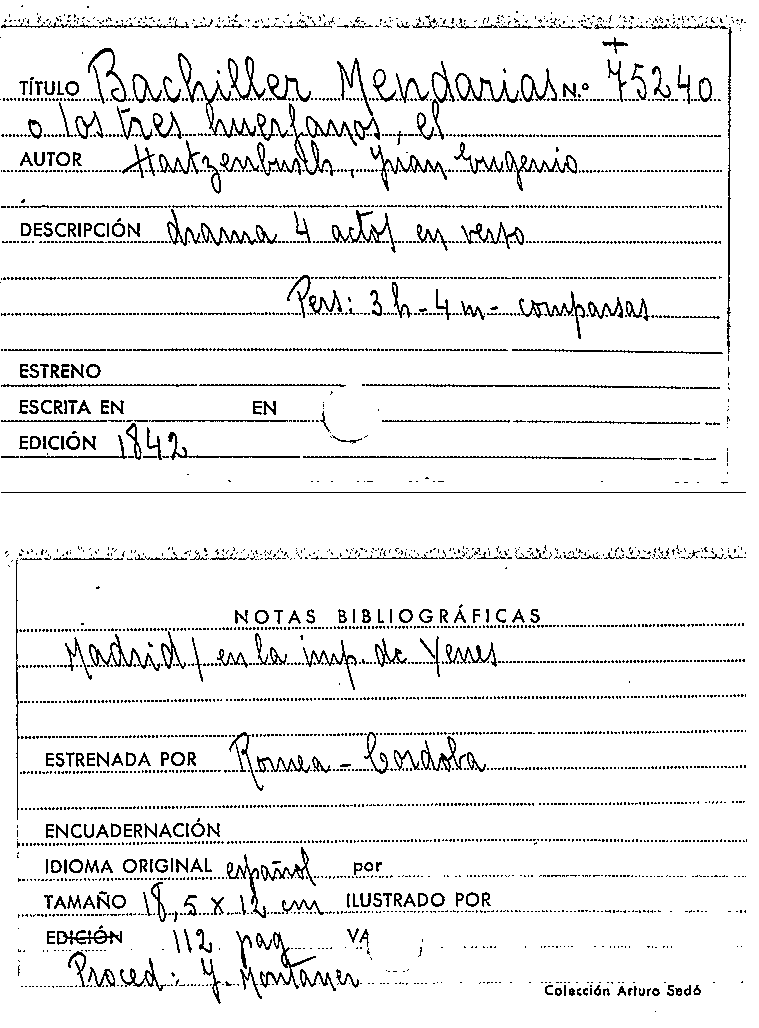 TÍTULO Bachiller Mendarias N.º 75240
o los tres huerfanos, el
AUTOR Hartzenbusch, Juan Eugenio
DESCRIPCIÓN drama 4 actos en verso
Pers: 3 h - 4 m - comparsas
ESTRENO
ESCRITA EN EN
EDICIÓN 1842
NOTAS BIBLIOGRÁFICAS
Madrid / en la imp. de Yenes
ESTRENADA POR Romea - Cordoba
ENCUADERNACIÓN
IDIOMA ORIGINAL español por
TAMAÑO 18,5 x 12 cm ILUSTRADO POR
EDICIÓN 112 pag VA
Proced: Y. Montaner
Colección Arturo Sedó